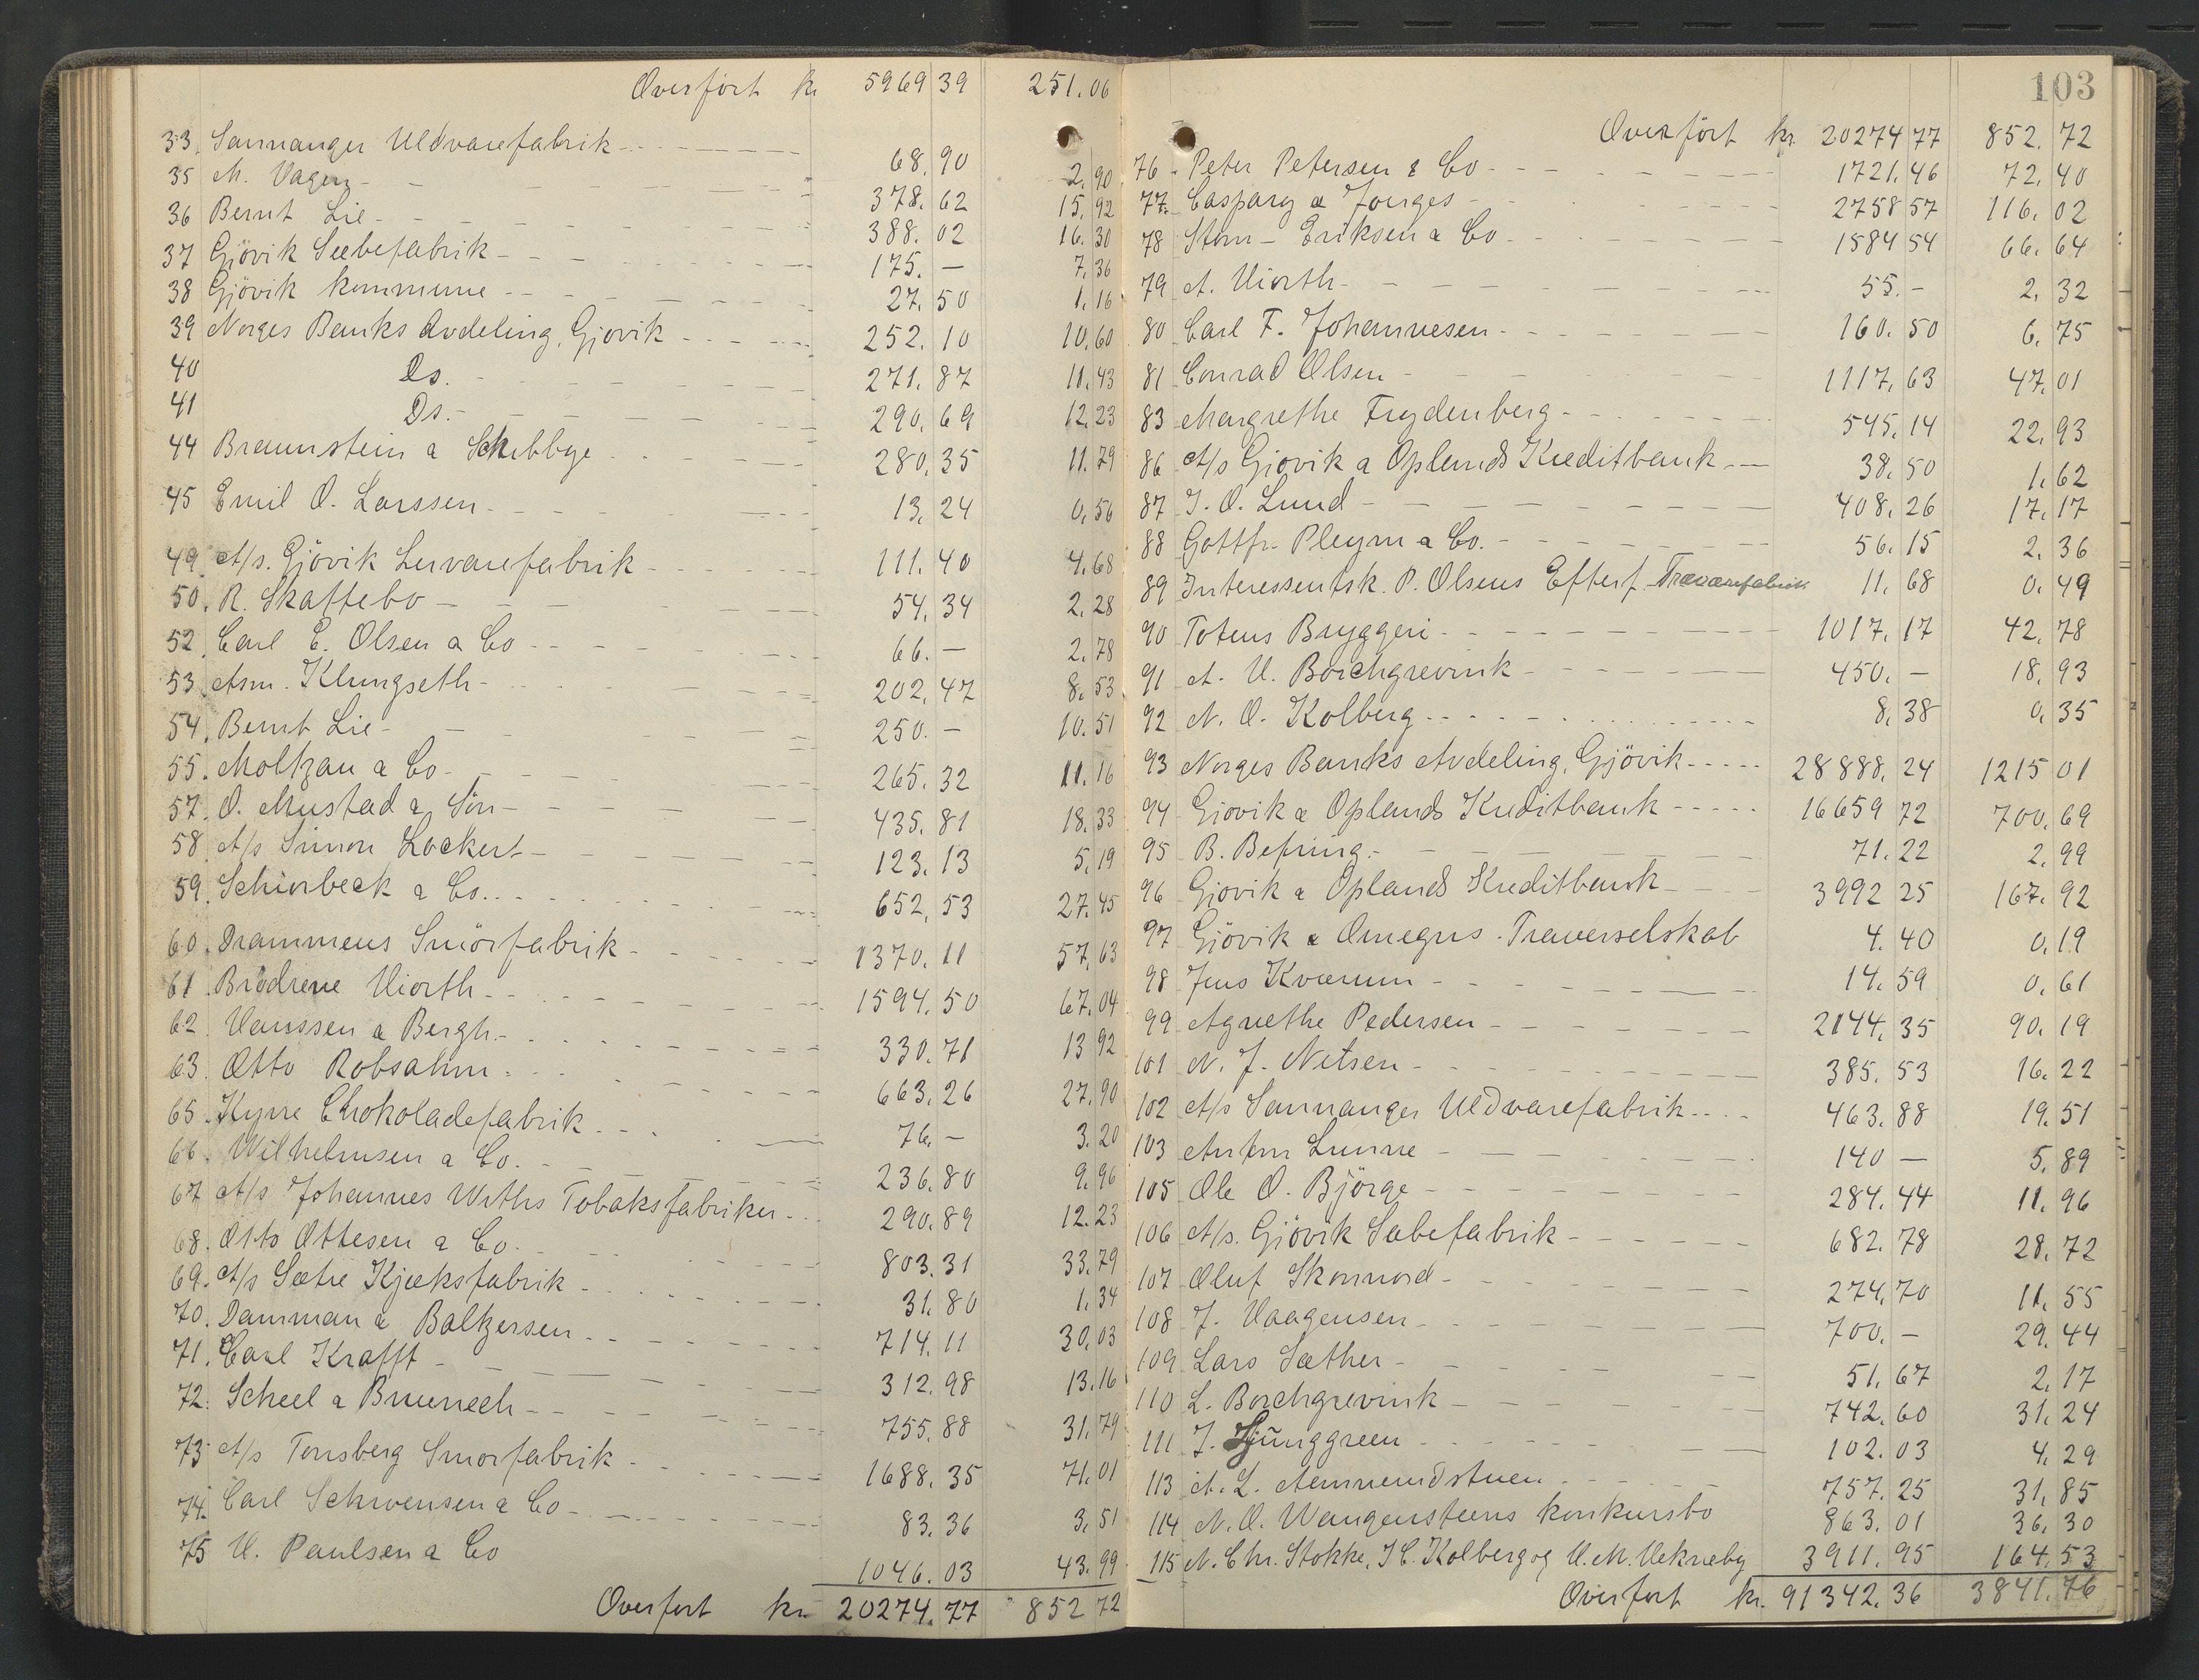 Overført kr 5969 39 251.06
33. Samnanger Uldvarefabrik 68.90 2.90
35 M. Vagen 378.62 15.92
36 Bernt Lie 388.02 16.30
37 Gjövik Sæbefabrik 175.— 7.36
38 Gjövik kommune 27.50 1.16
39 Norges Banks Avdeling, Gjovik 252.10 10.60
40 Ds. 271.87 11.43
41 Ds. 290.69 12.23
44 Braunstein a Schibbye 280.35 11.79
45 Emil O. Larssen 13.24 0.56
49. A/s. Gjövik Lervarefabrik 111.40 4.68
50. R. Skattebo 54.34 2.28
52. Carl E. Olsen a Co 66.— 2.78
53. Asm. Klungseth 202.47 8.53
54. Bernt Lie 250.— 10.51
55. Moltzau a Co 265.32 11.16
57. O. Mustad a Sön 435.81 18.33
58. A/s Simon Lockert 123.13 5.19
59. Schiorbeck a Co. 652.53 27.45
60. Drammens Smörfabrik 1370.11 57.63
61. Brödrene Hiorth 1594.50 67.04
62. Hanssen a Bergh. 330.71 13 92
63. Otto Robsahm 663.26 27.90
65. Kynne Chokoladefabrik 76.— 3.20
66. Wilhelmsen a Co. 236.80 9.96
67 A/s Johannes Withs Tobaksfabriker 290.89 12.23
68. Otto Ottesen a Co. 803.31 33.79
69. A/s Sætre Kjæksfabrik 31.80 1.34
70. Damman a Baltzersen 714.11 30.03
71. Carl Krafft 312.98 13.16
72. Scheel a Bruenech 755.88 31.79
73 A/s Tønsberg Smørfabrik 1688.35 71.01
74. Carl Schwensen a Co 83.36 3.51
75 H. Paulsen a Co 1046.03 43.99
Overført kr 20274.77 852 72
103
Overfört kr. 20274 77 852.72
76 Peter Petersen & Co 1721.46 72.40
77. Caspary a Jonges 2758 57 116.02
78 Storm-Eriksen a Co 1584 54 66.64
79 A. Hiorth 55.- 2.32
80 Carl F. Johannesen 160.50 6.75
81 Conrad Olsen 1117.63 47.01
83 Margrethe Frydenberg 545.14 22.93
86 A/s Gjovik a Oplands Kreditbank 38.50 1.62
87 J. O. Lund 408.26 17.17
88 Gottfr. Pleym a Co. 56.15 2.36
89 Interessentsk. P. Olsens Efterf. Trævarefabrik 11.68 0.49
90 Totens Bryggeri 1017.17 42.78
91 A. H. Borchgrevink 450.— 18.93
92 N. O. Kolberg 8.38 0.35
93 Norges Banks Avdeling, Gjövik 28888.24 1215 01
94 Gjovik a Oplands Kreditbank 16659 72 700.69
95 B. Befring 71.22 2.99
96 Gjovik a Oplands Kreditbank 3992 25 167.92
97 Gjövik a Omegns Traverselskab 4.40 0.19
98 Jens Kværum 14.59 0.61
99 Agnethe Pedersen 2144.35 90.19
101 N. J. Nilsen 385.53 16.22
102 A/s Samnanger Uldvarefabrik 463.88 19.51
103 Anton Lunne 140 — 5.89
105 Ole O. Björge 284.44 11.96
106 A/s. Gjövik Sæbefabrik 682.78 28.72
107 Oluf Skonnord 274.70 11.55
108 J. Haagensen 700.— 29.44
109 Lars Sæther 51.67 2.17
110 L. Borchgrevink 742.60 31.24
111 J. Ljunggreen 102.03 4.29
113 A. L. Amrundstuen 757.25 31.85
114 N. O. Wangensteens konkursbo 863.01 36.30
115 N. Chr. Stokke, J C. Kolberg og H. M. Vekneby 3911.95 164.53
Overfort kr. 91342.36 3841.76